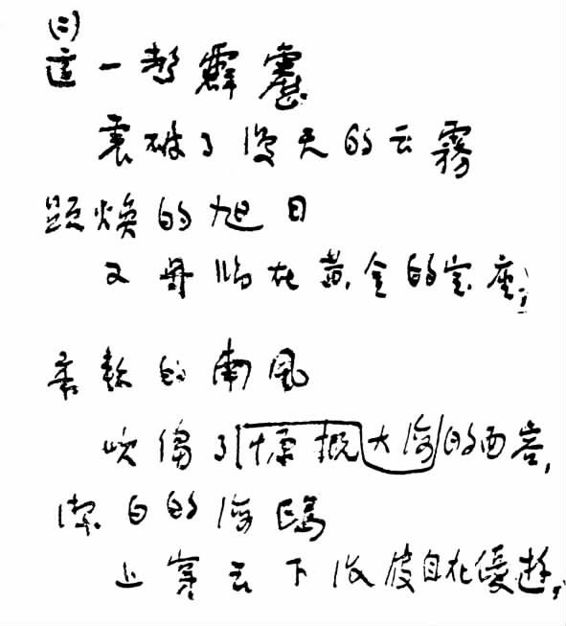 (二)
這一聲霹靂
震破了漫天的云霧
顯煥的旭日
又再臨在黃金的宝座;
柔軟的南風
吹皺了慷慨大海的面容,
潔白的海鷗
上穿云下沒波自在優遊,